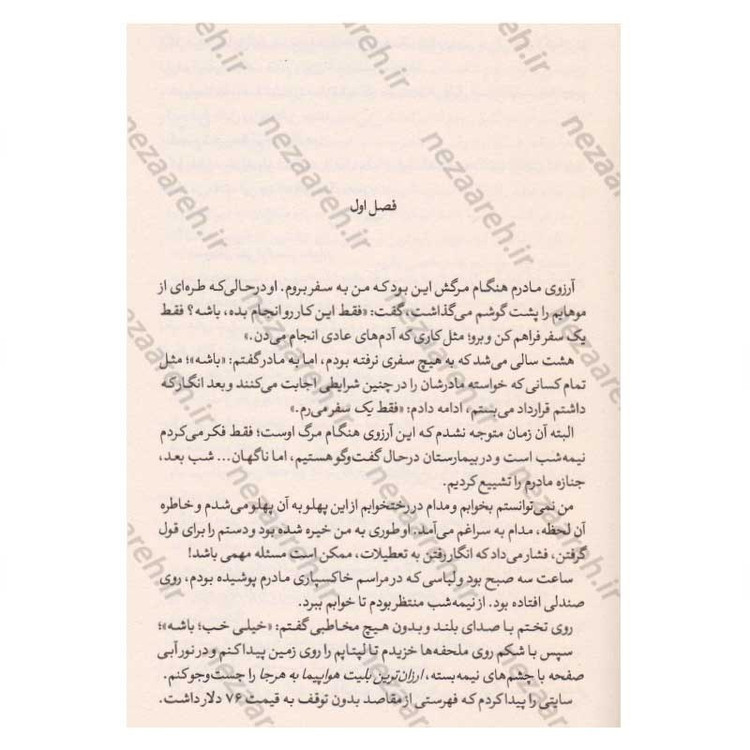 فصل اول
آرزوی مادرم هنگام مرگش این بود که من به سفر بروم. او درحالی‌که طره‌ای از
موهایم را پشت گوشم می‌گذاشت، گفت: «فقط این کار رو انجام بده، باشه؟ فقط
یک سفر فراهم کن و برو؛ مثل کاری که آدم‌های عادی انجام می‌دن.»
هشت سالی می‌شد که به هیچ سفری نرفته بودم، اما به مادر گفتم: «باشه»؛ مثل
تمام کسانی که خواسته مادرشان را در چنین شرایطی اجابت می‌کنند و بعد انگار که
داشتم قرارداد می‌بستم، ادامه دادم: «فقط یک سفر می‌رم.»
البته آن زمان متوجه نشدم که این آرزوی هنگام مرگ اوست؛ فقط فکر می‌کردم
نیمه‌شب است و در بیمارستان درحال گفت‌وگو هستیم، اما ناگهان... شب بعد،
جنازه مادرم را تشییع کردیم.
من نمی‌توانستم بخوابم و مدام در رختخوابم از این پهلو به آن پهلو می‌شدم و خاطره
آن لحظه، مدام به سراغم می‌آمد. او طوری به من خیره شده بود و دستم را برای قول
گرفتن، فشار می‌داد که انگار رفتن به تعطیلات، ممکن است مسئله مهمی باشد!
ساعت سه صبح بود و لباسی که در مراسم خاکسپاری مادرم پوشیده بودم، روی
صندلی افتاده بود. از نیمه‌شب منتظر بودم تا خوابم ببرد.
روی تختم با صدای بلند و بدون هیچ مخاطبی گفتم: «خیلی خب؛ باشه»؛
سپس با شکم روی ملحفه‌ها خزیدم تا لپتاپم را روی زمین پیدا کنم و در نور آبی
صفحه با چشم‌های نیمه‌بسته، ارزان‌ترین بلیت هواپیما به هرجا را جست‌وجو کنم.
سایتی را پیدا کردم که فهرستی از مقاصد بدون توقف به قیمت ۷۶ دلار داشت.
nezaareh.ir